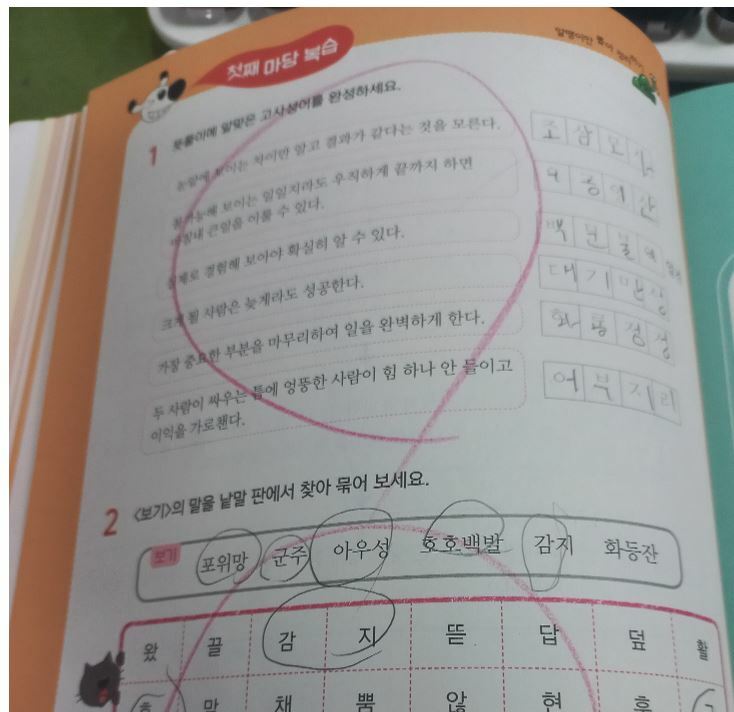 첫째 마당 복습
알맹이만 뽑아 정리하기
1 뜻풀이에 알맞은 고사성어를 완성하세요.
눈앞에 보이는 차이만 알고 결과가 같다는 것을 모른다.
조삼모사
불가능해 보이는 일일지라도 우직하게 끝까지 하면
마침내 큰일을 이룰 수 있다.
우공이산
실제로 경험해 보아야 확실히 알 수 있다.
백문불여
일견
크게 될 사람은 늦게라도 성공한다.
대기만성
가장 중요한 부분을 마무리하여 일을 완벽하게 한다.
화룡정정
두 사람이 싸우는 틈에 엉뚱한 사람이 힘 하나 안 들이고
이익을 가로챈다.
어부지리
2 <보기>의 말을 낱말 판에서 찾아 묶어 보세요.
보기
포위망 군주 아우성 호호백발 감지 화등잔
왔 끌 감 지 뜯 답 덮 활
막 채 뿜 않 현